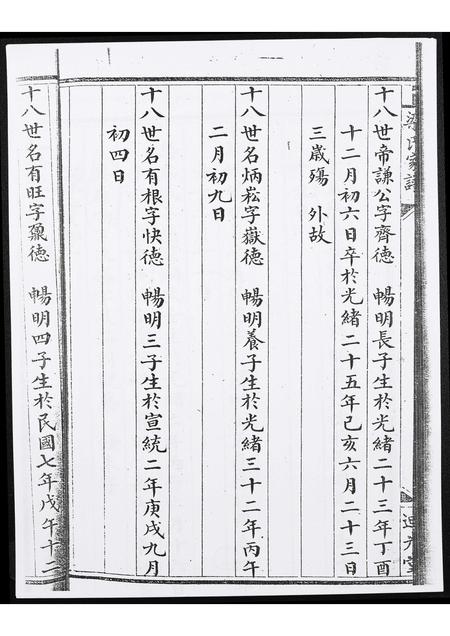 梁氏家譜
十八世帝謙公字齊德　暢明長子生於光緒二十三年丁酉
十二月初六日卒於光緒二十五年己亥六月二十三日
三歲殤　外故
十八世名炳崧字嶽德　暢明養子生於光緒三十二年丙午
二月初九日
十八世名有根字快德　暢明三子生於宣統二年庚戌九月
初四日
十八世名有旺字鼐德　暢明四子生於民國七年戊午十二